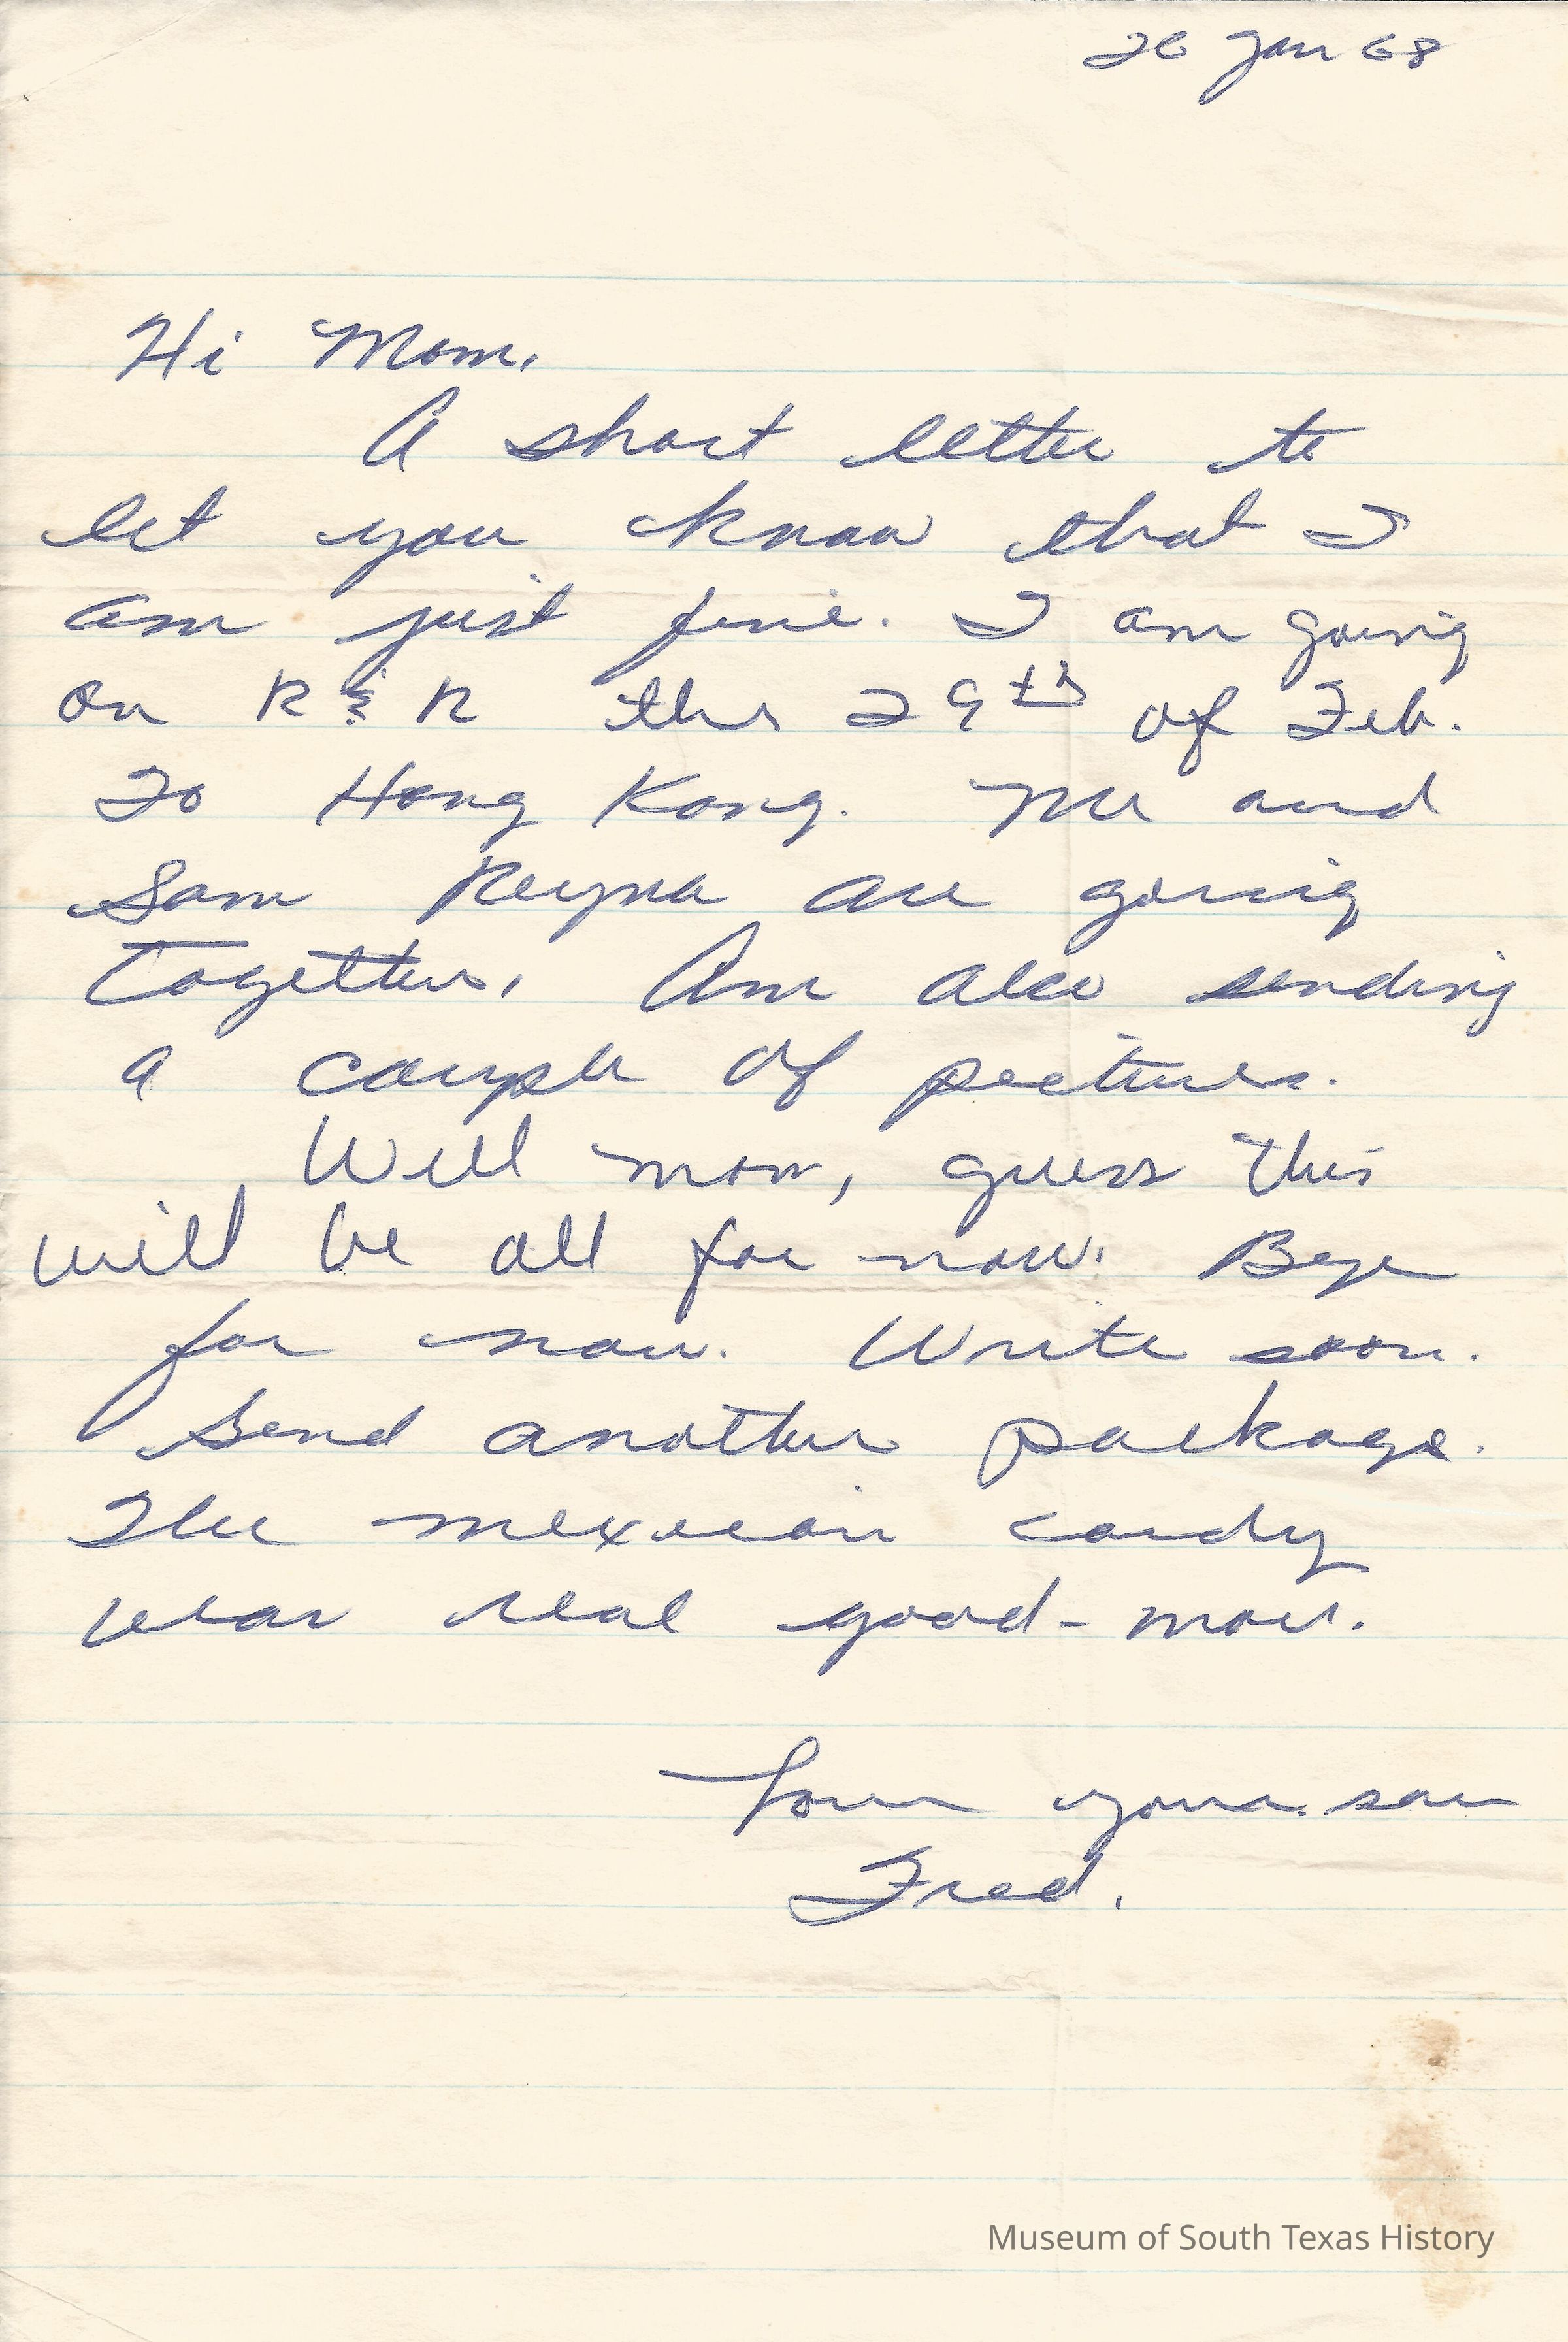 26 Jan 68
Hi Mom,
A short letter to
let you know that I
am just fine. I am going
on R & R the 29th of Feb.
To Hong Kong. Me and
Sam Reyna are going
Together. Am also sending
a couple of pictures.
Well mom, guess this
will be all for now. Bye
for now. Write soon.
Send another package.
The mexican candy
was real good - mom.
Love your son
Fred.
Museum of South Texas History